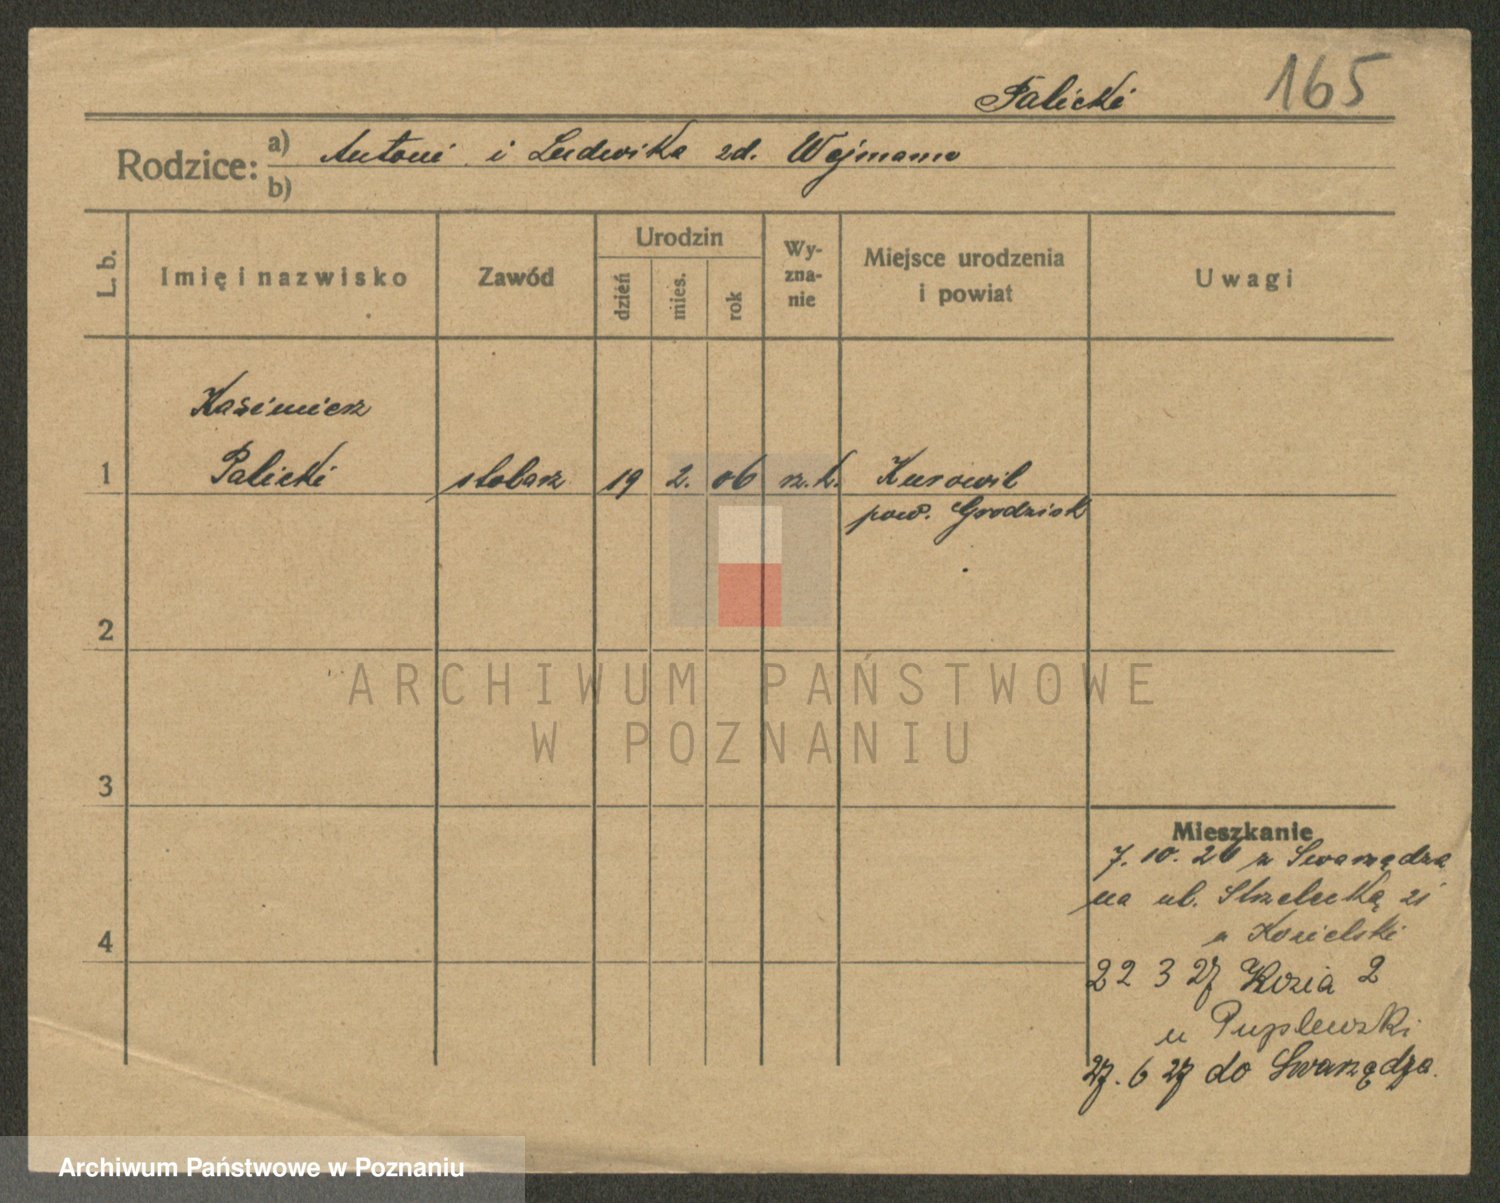 165
Palicki
Rodzice: a) Antoni i Ludwika zd. Wejmann
b)
L. b.
Imię i nazwisko
Zawód
Urodzin
dzień
mies.
rok
Wy-
zna-
nie
Miejsce urodzenia
i powiat
Uwagi
Kazimierz
1 Palicki stolarz 19 2. 06 rz. k. Kurowil
pow. Grodzisk
2
3
4
Mieszkanie
7. 10. 26 z Swarzędza
na ul. Strzelecką 21
u Kozielski
22 3 27 Kozia 2
u Puplewski
27. 6 27 do Swarzędza.
ARCHIWUM PAŃSTWOWE
W POZNANIU
Archiwum Państwowe w Poznaniu